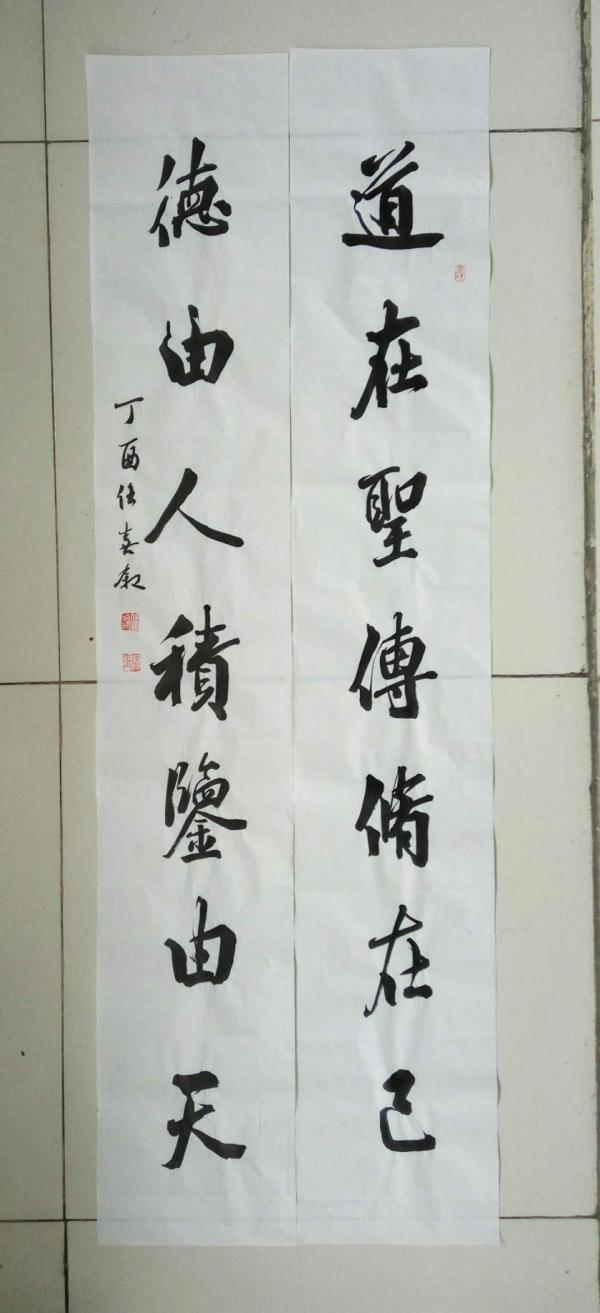 道在聖傳脩在己
德由人積鑒由天
丁酉